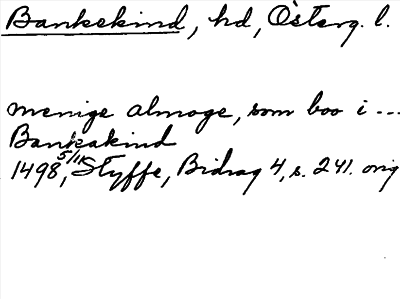 Bankekind, hd, Österg. l.
menige almoge, som boo i ...
Bankakind
1498 5/11, Styffe, Bidrag 4, s. 241. orig